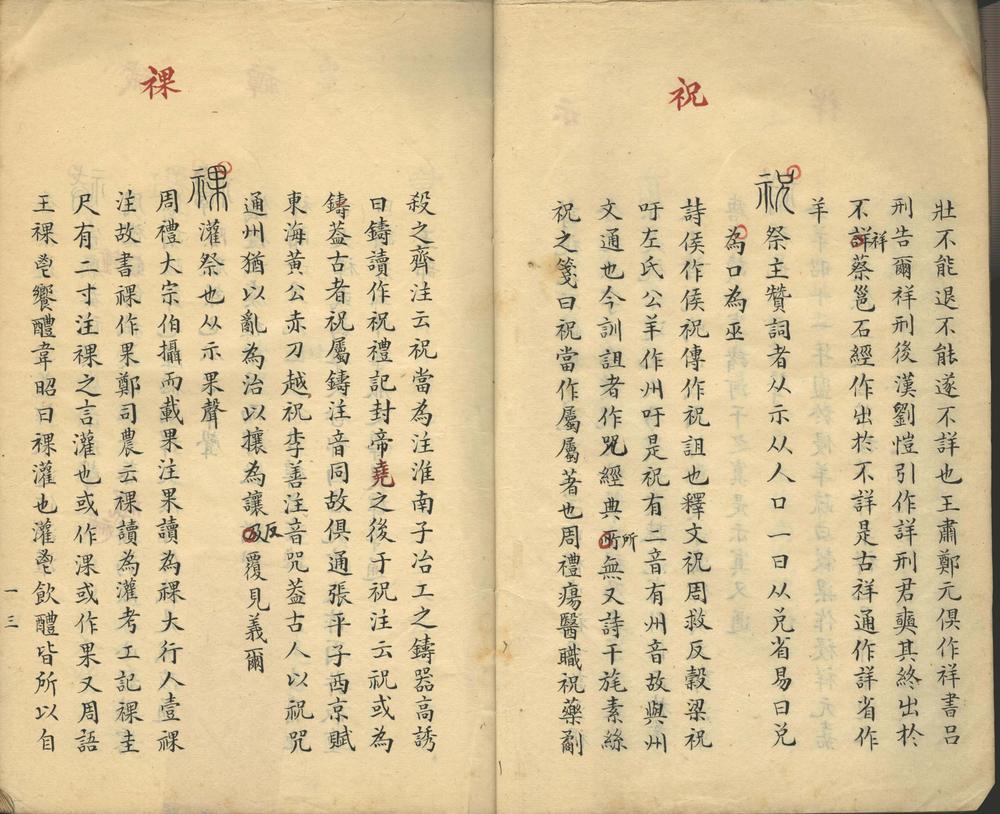 壯不能退不能遂不詳也王肅鄭元俱作祥書吕
刑告爾祥刑後漢劉愷引作詳刑君奭其終出於
不詳祥蔡邕石經作出於不詳是古祥通作詳省作
羊
祝
祝祭主贊詞者从示从人口一曰从兌省易曰兌
為口為巫
詩侯作侯祝傳作祝詛也釋文祝周救反穀梁祝
吁左氏公羊作州吁是祝有二音有州音故與州
文通也今訓詛者作咒經典所所無又詩干旄素絲
祝之箋曰祝當作屬屬著也周禮瘍醫職祝藥劀
殺之齊注云祝當為注淮南子冶工之鑄器高誘
曰鑄讀作祝禮記封帝堯之後于祝注云祝或為
鑄葢古者祝屬鑄注音同故俱通張平子西京賦
東海黄公赤刀越祝李善注音咒葢古人以祝咒
通州猶以亂為治以攘為讓反覆見義爾
祼
祼灌祭也从示果聲
周禮大宗伯攝而載果注果讀為祼大行人壹祼
注故書祼作果鄭司農云祼讀為灌考工記祼圭
尺有二寸注祼之言灌也或作淉或作果又周語
王祼鬯饗醴韋昭曰祼灌也灌鬯飲醴皆所以自
一三